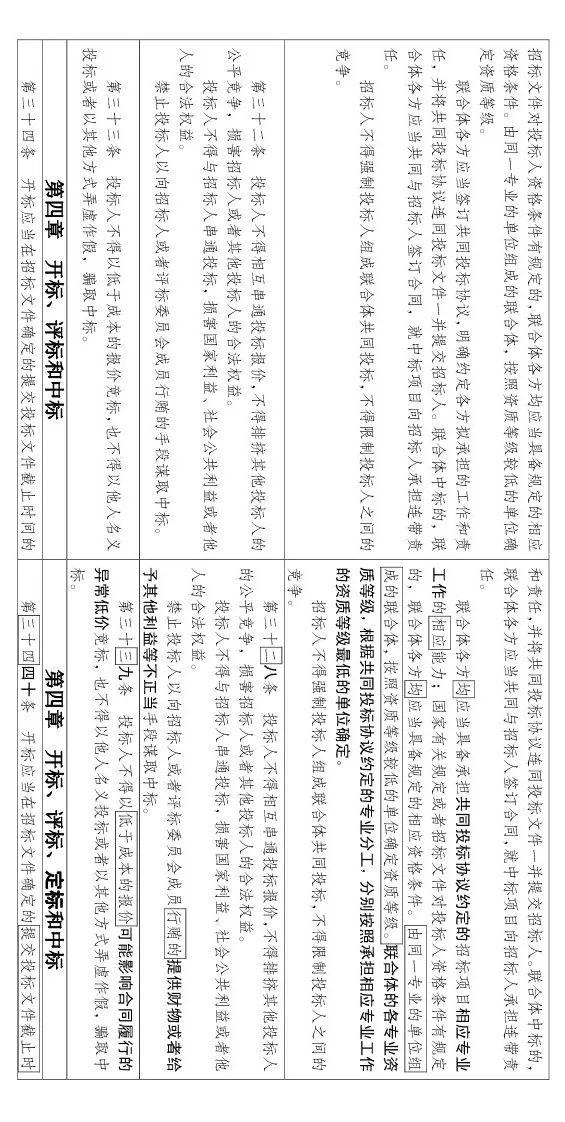 招标文件对投标人资格条件有规定的，联合体各方均应当具备规定的相应
资格条件。由同一专业的单位组成的联合体，按照资质等级较低的单位确
定资质等级。
联合体各方应当签订共同投标协议，明确约定各方拟承担的工作和责
任，并将共同投标协议连同投标文件一并提交招标人。联合体中标的，联
合体各方应当共同与招标人签订合同，就中标项目向招标人承担连带责
任。
招标人不得强制投标人组成联合体共同投标，不得限制投标人之间的
竞争。
和责任，并将共同投标协议连同投标文件一并提交招标人。联合体中标的，
联合体各方应当共同与招标人签订合同，就中标项目向招标人承担连带责
任。
联合体各方均应当具备承担共同投标协议约定的招标项目相应专业
工作的相应能力；国家有关规定或者招标文件对投标人资格条件有规定
的，联合体各方均应当具备规定的相应资格条件。由同一专业的单位组
成的联合体，按照资质等级较低的单位确定资质等级。联合体的各专业资
质等级，根据共同投标协议约定的专业分工，分别按照承担相应专业工作
的资质等级最低的单位确定。
招标人不得强制投标人组成联合体共同投标，不得限制投标人之间的
竞争。
第三十二条 投标人不得相互串通投标报价，不得排挤其他投标人的
公平竞争，损害招标人或者其他投标人的合法权益。
投标人不得与招标人串通投标，损害国家利益、社会公共利益或者他
人的合法权益。
禁止投标人以向招标人或者评标委员会成员行贿的手段谋取中标。
第三十二八条 投标人不得相互串通投标报价，不得排挤其他投标人
的公平竞争，损害招标人或者其他投标人的合法权益。
投标人不得与招标人串通投标，损害国家利益、社会公共利益或者他
人的合法权益。
禁止投标人以向招标人或者评标委员会成员行贿的提供财物或者给
予其他利益等不正当手段谋取中标。
第三十三条 投标人不得以低于成本的报价竞标，也不得以他人名义
投标或者以其他方式弄虚作假，骗取中标。
第三十三九条 投标人不得以低于成本的报价可能影响合同履行的
异常低价竞标，也不得以他人名义投标或者以其他方式弄虚作假，骗取中
标。
第四章 开标、评标和中标
第四章 开标、评标、定标和中标
第三十四条 开标应当在招标文件确定的提交投标文件截止时间的
第三十四四十条 开标应当在招标文件确定的提交投标文件截止时